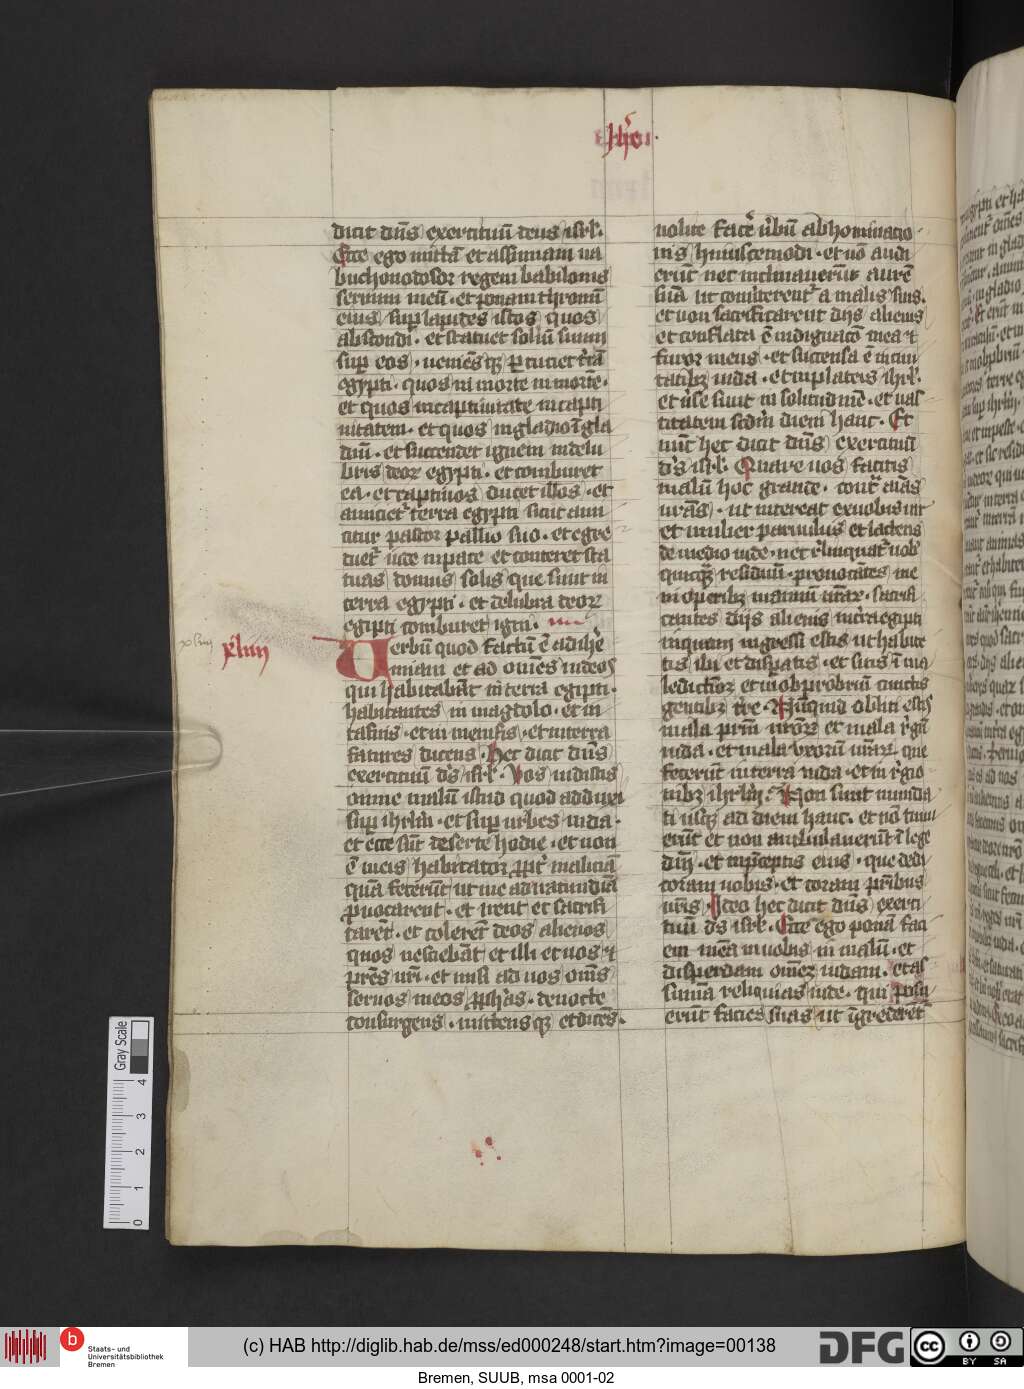 Jhe.
dicit dn̄s exercituū deus isrl̄.
Ecce ego mittā et assumam na
buchonodosor regem babilonis
seruum meū · et ponam thronū
eius sup lapides istos quos
abscondi · et statuet soliū suum
sup eos · ueniēs qz pcuciet t̄rā
egypti · quos in morte in mortē ·
et quos in captiuitate in capti
uitatem · et quos in gladio ī gla
diū · et succendet ignem in delu
bris deor egypti · et comburet
ea · et captiuos ducet illos · et
amiciet terra egypti sicut ami
citur pastor pallio suo · et egre
diet inde in pace et conteret sta
tuas domus solis que sunt in
terra egypti · et delubra deor
egipti comburet igni.
xliiii
xliiii
Uerbū quod factū ē ad ihe
miam et ad omēs iudeos
qui habitabāt in terra egipti ·
habitantes in magdolo · et in
tafnis · et in memfis · et in terra
fatures dicens · Hec dicit dn̄s
exercituū ds̄ isrl̄ · Vos uidistis
omne malū istud quod adduxi
sup ihrlm̄ · et sup urbes iuda ·
et ecce sūt deserte hodie · et non
ē in eis habitator ppt̄ maliciā
quā fecerūt ut me ad iracundiā
puocarent · et irent et sacrifi
carēt · et colerēt deos alienos
quos nesciebāt et illi · et uos ⁊
prēs ur̄i · et misi ad uos om̄s
seruos meos pphās · de nocte
consurgens · mittens qz et dicēs ·
nolite facē ūbū abhominatio
nis huiuscemodi · et nō audi
erūt nec inclinauerūt aurē
suā ut conūterent a malis suis ·
et non sacrificarent dijs alienis
et conflata ē indignacō mea ⁊
furor meus · et succensa ē in ciui
tatibz iuda · et in plateis ihrl̄ ·
et ūse sunt in solitudinē · et uas
titatem scdm̄ diem hanc · Et
nūc hec dicit dn̄s exercituū
ds̄ isrl̄ · Quare uos facitis
malū hoc grande · contra aīas
urās · ut intereat ex uobis uir
et mulier paruulus et lactens
de medio iude · nec relinquat uob̄
quicqz residuū · prouocātes me
in operibz manuū urār · sacrifi
cantes dijs alienis in terra egipti
in quam ingressi estis ut habite
tis ibi et dispeatis · et sitis ī ma
ledictiōz et in obprobriū cunctis
gentibz tr̄e · Nūquid obliti estis
mala prm̄ urōr et mala regū
iuda · et mala vxorū urār · que
fecerūt in terra iuda · et in regio
nibz ihrlm̄ · Non sunt munda
ti usqz ad diem hanc · et nō timu
erūt et non ambulauerūt ī lege
dn̄i · et in pceptis eius · que dedi
coram uobis · et coram prībus
ur̄is · Ideo hec dicit dn̄s exerci
tuū ds̄ isrl̄ · Ecce ego ponā faci
em meā in uobis in malū · et
disperdam omēz iudam · et as
sumā reliquias iude · qui posu
erūt facies suas ut īgrederēt
Gray Scale
4
3
2
1
0
b
Staats- und
Universitätsbibliothek
Bremen
(c) HAB http://diglib.hab.de/mss/ed000248/start.htm?image=00138
DFG
cc
BY
SA
Bremen, SUUB, msa 0001-02